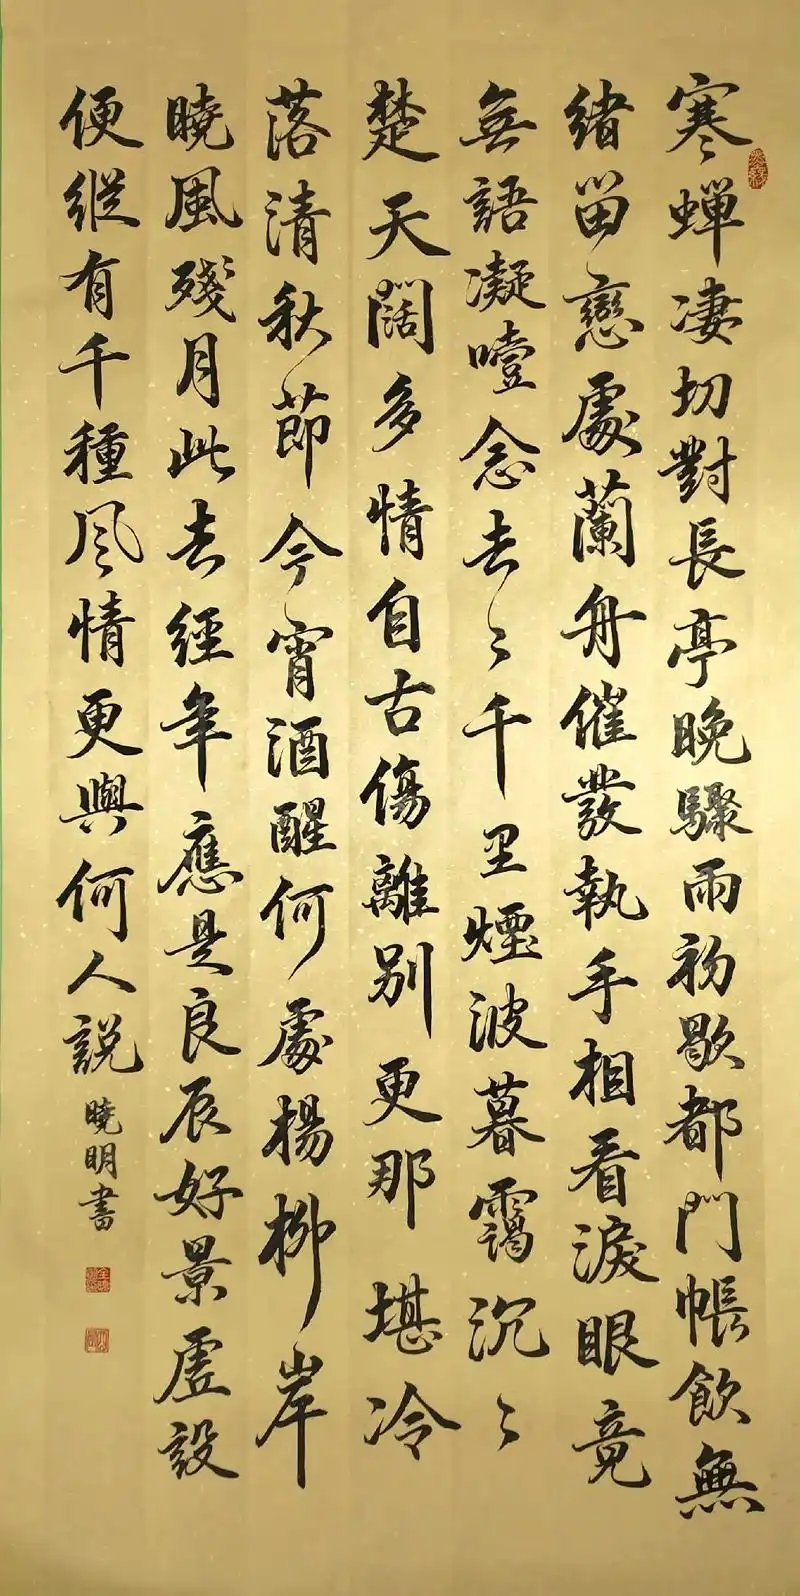 寒蟬凄切對長亭晚驟雨初歇都門帳飲無
緒留戀處蘭舟催發執手相看淚眼竟
無語凝噎念去〻千里煙波暮靄沉〻
楚天闊多情自古傷離別更那堪冷
落清秋節今宵酒醒何處楊柳岸
曉風殘月此去經年應是良辰好景虛設
便縱有千種風情更與何人說
曉明書